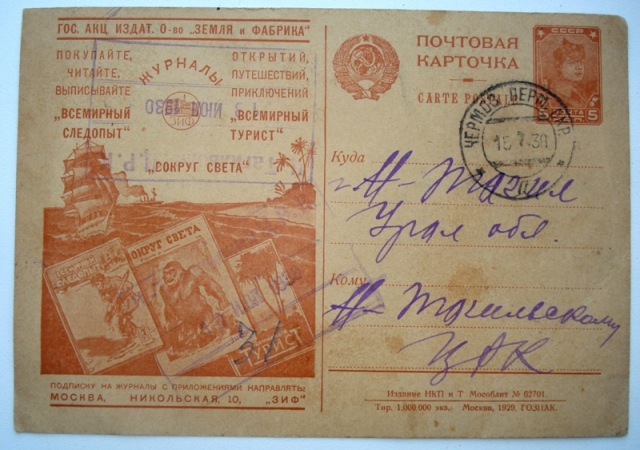 ГОС. АКЦ ИЗДАТ. О-во "ЗЕМЛЯ и ФАБРИКА"
ПОКУПАЙТЕ,
ЧИТАЙТЕ,
ВЫПИСЫВАЙТЕ
"ВСЕМИРНЫЙ
СЛЕДОПЫТ"
ЖУРНАЛЫ
ОТКРЫТИЙ,
ПУТЕШЕСТВИЙ,
ПРИКЛЮЧЕНИЙ
"ВСЕМИРНЫЙ
ТУРИСТ"
"ВОКРУГ СВЕТА"
ВОКРУГ СВЕТА
ТУРИСТ
ПОДПИСКУ НА ЖУРНАЛЫ С ПРИЛОЖЕНИЯМИ НАПРАВЛЯТЬ:
МОСКВА, НИКОЛЬСКАЯ, 10, "ЗИФ"
ПОЧТОВАЯ
КАРТОЧКА
CARTE
СССР
5
ЧЕРМОЗ
15.7.30
Куда
г. Н-Тагил
Урал обл.
Кому
Н-Тагильскому
Издание НКП и Т Мособлит № 02701.
Тир. 1.000.000 экз. Москва, 1929. ГОЗНАК.
ИЮН 1930